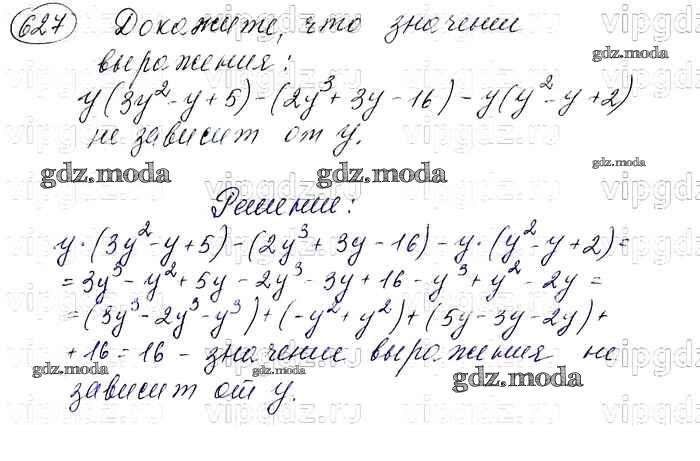 627 Докажите, что значении
выражения:
y(3y²-y+5)-(2y³+3y-16)-y(y²-y+2)
не зависит от y.
gdz.moda gdz.moda gdz.moda
Решении:
y·(3y²-y+5)-(2y³+3y-16)-y·(y²-y+2)=
=3y³-y²+5y-2y³-3y+16-y³+y²-2y=
=(3y³-2y³-y³)+(-y²+y²)+(5y-3y-2y)+
+16=16 - значение выражения не
зависит от y.
gdz.moda gdz.moda